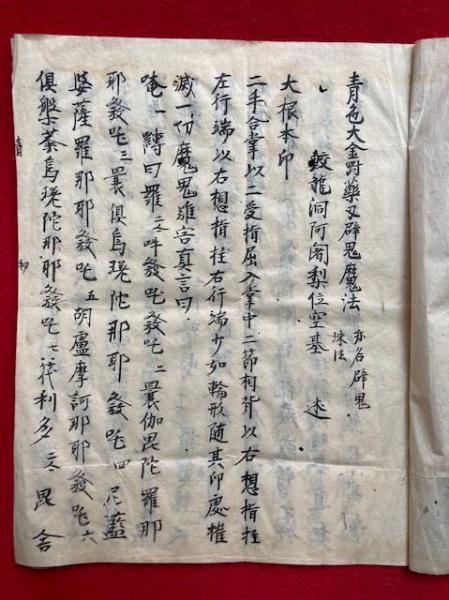 青色大金剛藥叉辟鬼魔法 亦名辟鬼
殊法
蛟龍洞阿闍梨位空基 述
大根本印
二手合掌以二受指屈入掌中二節相背以右想指拄
左行端以右想指拄右行端少如輪形隨其印處摧
滅一切魔鬼難害真言曰
唵一縛曰羅二合吽發吒發吒二曩伽毘陀羅那
耶發吒三曩俱烏瑳陀那那耶發吒四尼藍
婆薩羅那那耶發吒五胡盧摩訶那那耶發吒六
俱槃荼烏瑳陀那那耶發吒七筏利多二合毘舍